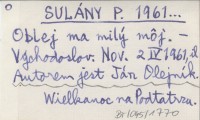 SULÁNY P. 1961...
Oblej ma milý môj. –
Východoslov. Nov. 2 IV 1961, il.
Autorem jest Ján Olejník.
Wielkanoc na Podtatrzu.
DI/1045/1770